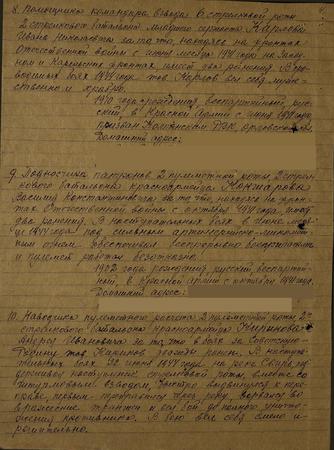 8. Помощника командира взвода 6 стрелковой роты
2 стрелкового батальона младшего сержанта Карпова
Ивана Николаевича за то, что находясь на фронтах
Отечественной войны с июня месяца 1941 года на Запад-
ном и Карельском фронтах имеет два ранения. В
боях 1944 года тов. Карпов вел себя муже-
ственно и храбро.
1910 года рождения, беспартийный, рус-
ский, в Красной Армии с июня 1941 года,
призван РВК,
Домашний адрес:
9. Подносчика патронов 2 пулеметной роты 2 стрел-
кового батальона красноармейца
Василия Константиновича за то, что находясь на фрон-
тах Отечественной войны с октября 1941 года имеет
два ранения. В наступательных боях в июне меся-
це 1944 года под сильным артиллерийско-миномет-
ным огнем обеспечивал бесперебойно боеприпасами
и пулемет работал безотказно.
1902 года рождения, русский, беспартий-
ный, в Красной Армии с октября 1941 года,
Домашний адрес:
10. Наводчика пулеметного расчета 2 пулеметной роты 2
стрелкового батальона красноармейца
Андрея Ивановича за то, что в боях за Советскую
Родину тов. дважды ранен. В наступа-
тельных боях 22 июня 1944 года на реке Свирь под-
держивал наступление стрелковой роты, вместе со
штурмовым взводом, выдвинулся к пере-
праве, первым переправился через реку, ворвался во
вражеские траншеи и вел бой до полного уничто-
жения противника. В бою вел себя смело и
решительно.